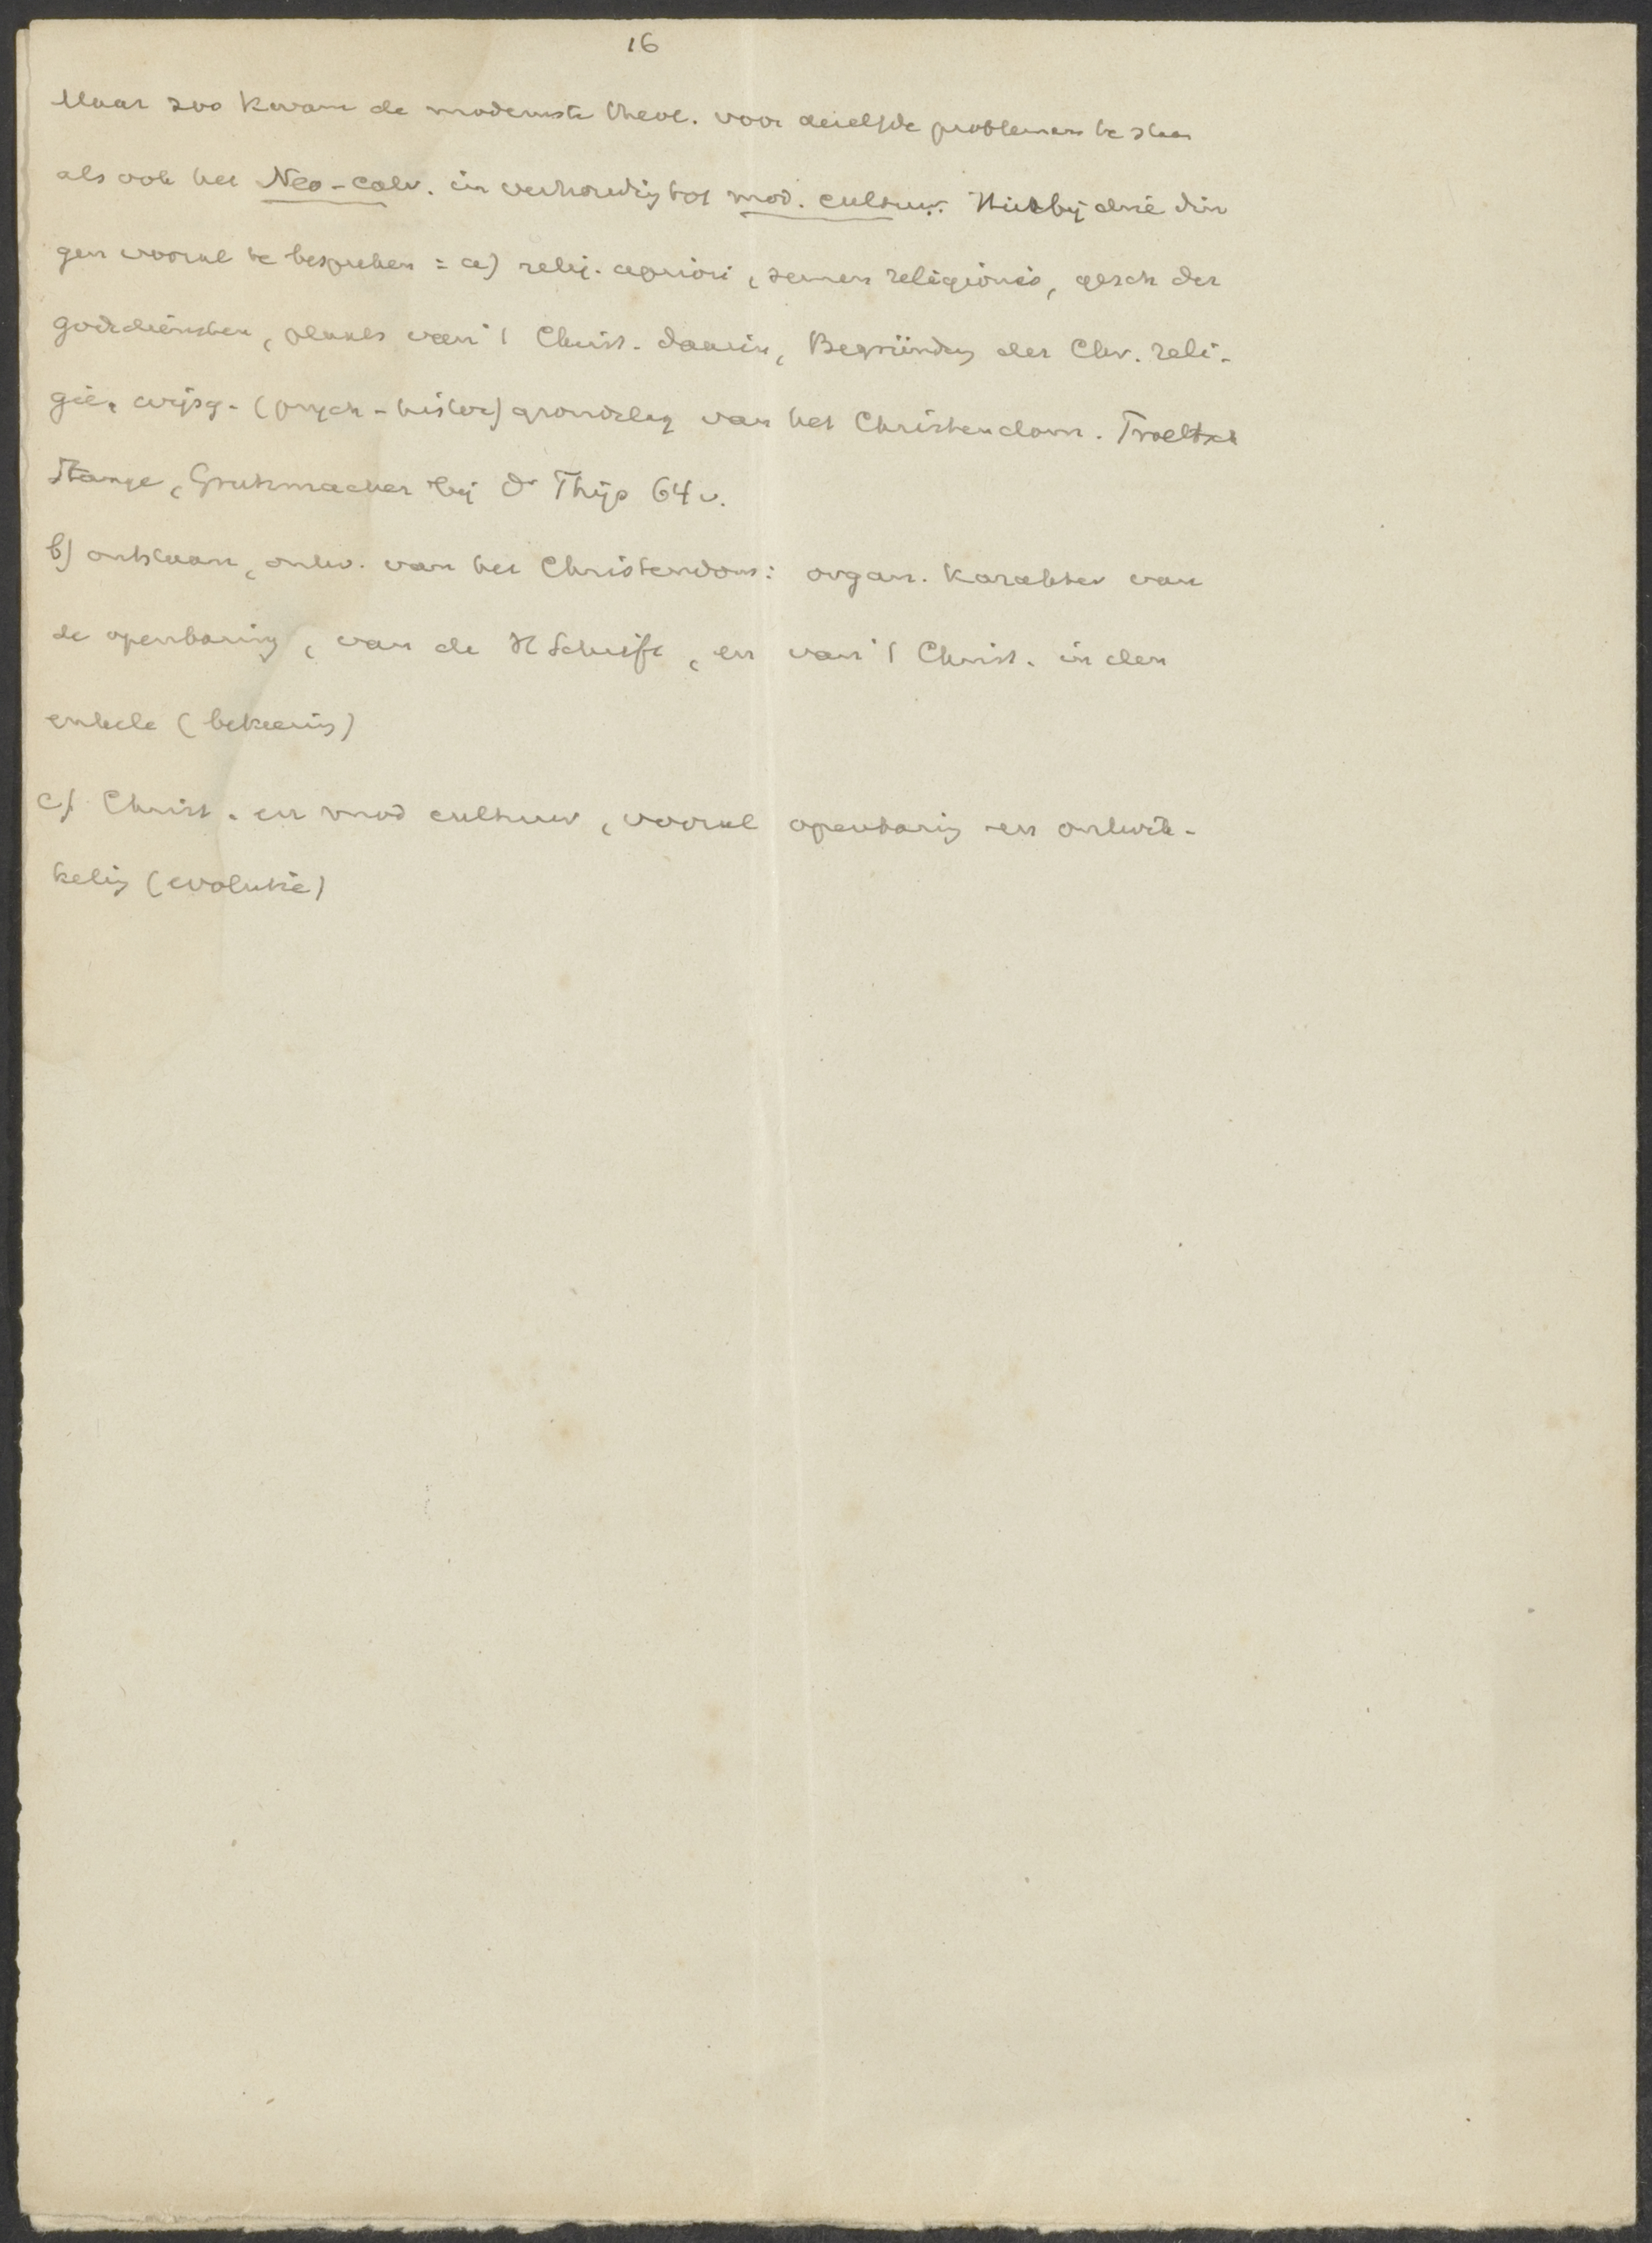 16
Maar zoo kwam de modernste theol. voor dezelfde problemen te staan
als ook het Neo-calv. in verhouding tot mod. cultuur. Hierbij drie din
gen vooral te bespreken = a) relig. apriori, semen religionis, gesch der
godsdiensten, plaats van 't Christ. daarin, Begründung der Chr. reli-
gie, wijsg. (psych-histor) grondslag van het Christendom. Troeltsch
Stange, Grutzmacher bij Dr Thijs 64 v.
b) ontstaan, ontw. van het Christendom: organ. karakter van
de openbaring, van de H Schrift, en van 't Christ. in den
enkele (bekeering)
c) Christ. en mod cultuur, vooral openbaring en ontwik-
keling (evolutie)